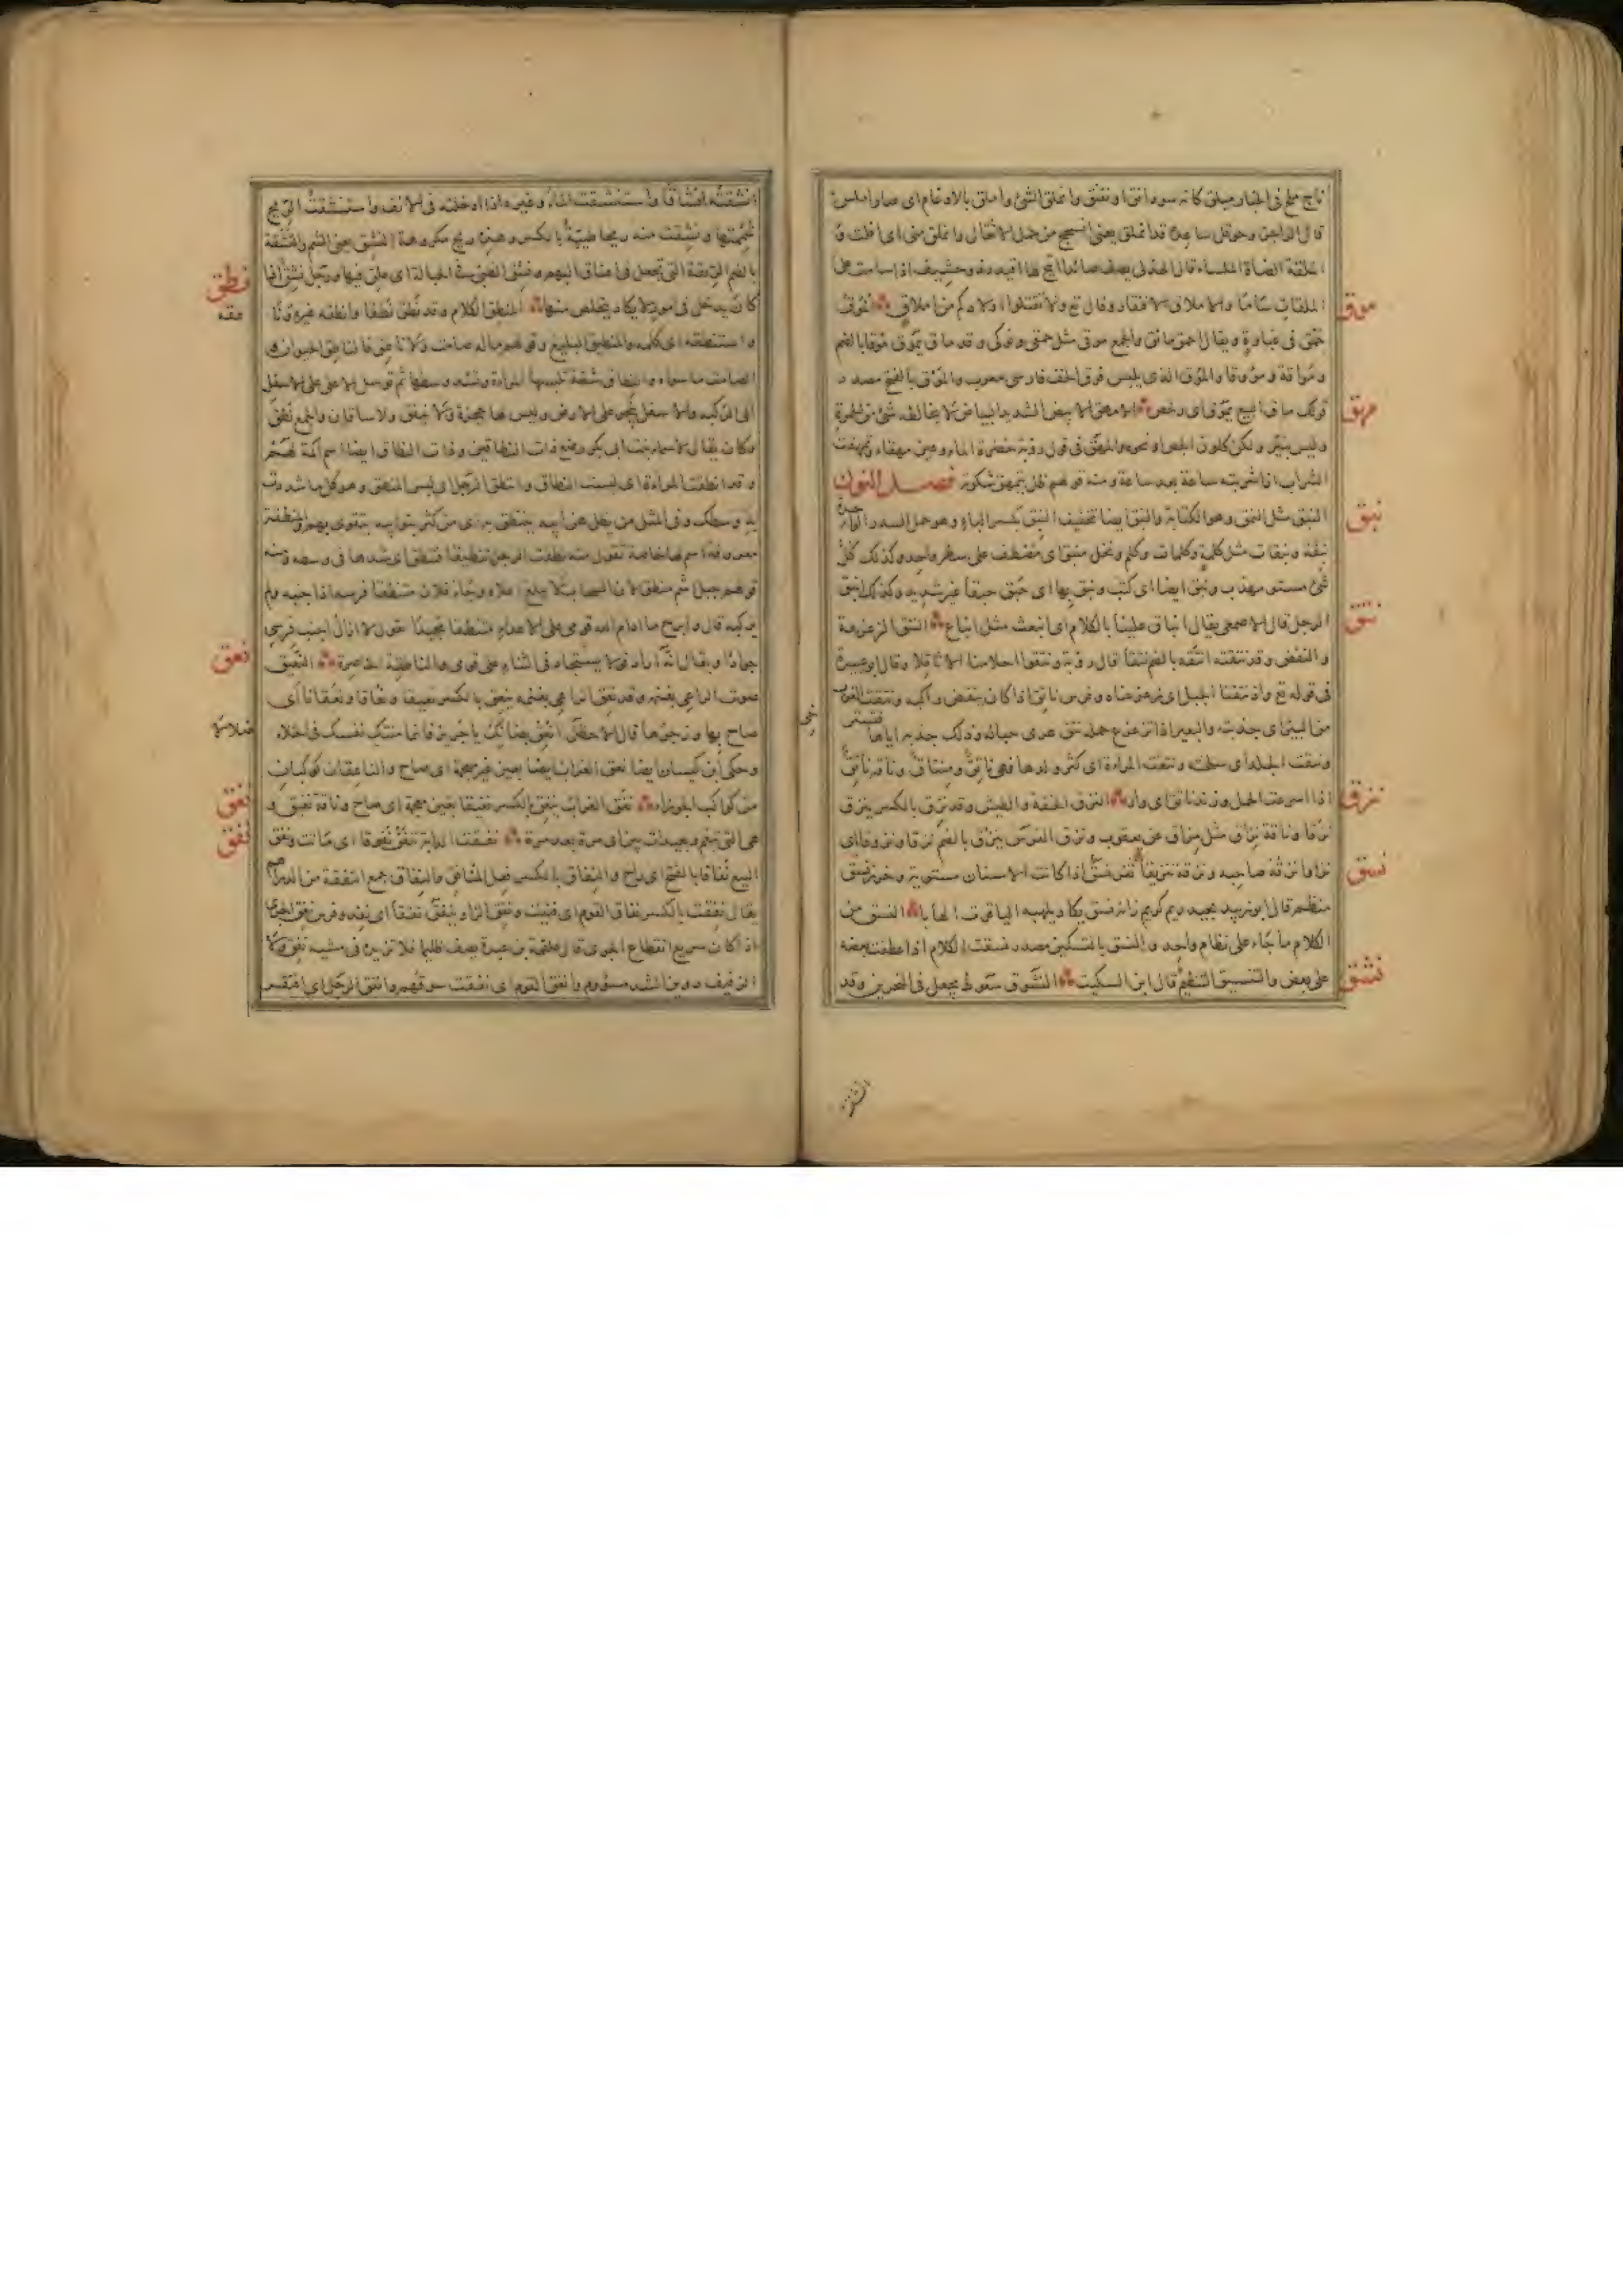 قال الراجز وحوقل ساعده قد انملق يعنى انسحج من حمل الاثقال وانملق منى اى افلت و
الملقات سّاما والاملاق الافتقار وقال تع ولا تقتلوا اولادكم من املاق الموق
موق
حمق فى غباوة ويقال احمق مائق والجمع موقى مثل حمقى ونوكى وقد ماق يموق موقا بالضم
ومواقة ومؤوقا والموق الذى يلبس فوق الخف فارسى معرب والموق بالفتح مصدر
قولك ماق البيع يموق اى رخص الامهق الابيض الشديد البياض لا يخالطه شئ من الحمرة
مهق
وليس بنير ولكن كلون الجص او نحوه والمهق فى قول رؤبة خضرة الماء وعين مهقاء وتمهقت
الشراب اذا شربته ساعة بعد ساعة ومنه قولهم ظل يتمهق شكوته فصل النون
النبق مثل النمق وهو الكتابة والنبق ايضا تخفيف النبق بكسر الباء وهو حمل السدر الواحدة
نبق
نبقة ونبقات مثل كلمة وكلمات وكلم ونخل منبق اى مصطف على سطر واحد وكذلك كل
شئ مستو مهذب ونبق ايضا اى كتب ونبق بها اى حبق حبقا غير شديد وكذلك انبق
الرجل قال الاصمعى يقال انباق علينا بالكلام اى انبعث مثل انباع النتق الزعزعة
نتق
والنفض وقد نتقته انتقه بالضم نتقا قال رؤبة ونتقوا احلامنا الاثاقلا وقال ابو عبيدة
فى قوله تع واذ نتقنا الجبل اى زعزعناه وفرس ناتق اذا كان ينفض راكبه ونتقت الغرب
من البئر اى جذبته والبعير اذا تزعزع حمله نتق عرى حباله وذلك جذبه اياها فتسترخى
ونتقت الجلد اى سلخته ونتقت المراءة اى كثر ولدها فهى ناتق ومنتاق وناقة ناتق
اذا اسرعت الحمل وزند ناتق اى وار النزق الخفة والطيش وقد نزق بالكسر ينزق
نزق
نزقا وناقة نزاق مثل مزاق عن يعقوب ونزق الفرس ينزق بالضم نزقا ونزوقا اى
نزا وانزقه صاحبه ونزقه تنزيقا ثغر نسق اذا كانت الاسنان مستوية وخرز نسق
نسق
منظم قال ابو زبيد بجيد ريم كريم زانه نسق يكاد يلهبه الياقوت الهابا النسق من
الكلام ما جاء على نظام واحد والنسق بالتسكين مصدر نسقت الكلام اذا عطفت بعضه
على بعض والتنسيق التنظيم قال ابن السكيت النشوق سعوط يجعل فى المنخرين وقد
نشق
انشقته انشاقا واستنشقت الماء وغيره اذا ادخلته فى الانف واستنشقت الريح
شممتها ونشقت منه ريحا طيبة بالكسر وهذه ريح مكروهة النشق يعنى الشم والنشقة
بالضم الربقة التى تجعل فى اعناق البهم ونشق الظبى فى الحبالة اى علق فيها ورجل نشق اذا
كان يدخل فى امور لا يكاد يتخلص منها المنطق الكلام وقد نطق نطقا وانطقه غيره وناطقه
نطق
واستنطقه اى كلمه والمنطيق البليغ وقولهم ماله صامت ولا ناطق فالناطق الحيوان و
الصامت ما سواه والنطاق شقة تلبسها المراءة وتشد وسطها ثم ترسل الاعلى على الاسفل
الى الركبة والاسفل ينجر على الارض وليس لها حجزة ولا نيفق ولا ساقان والجمع نطق
وكان يقال لاسماء بنت ابى بكر رضع ذات النطاقين وذات النطاق ايضا اسم اكمة لهم
وقد انتطقت المراءة اى لبست النطاق وانتطق الرجل اى لبس المنطق وهو كل ما شددت
به وسطك وفى المثل من يطل هن ابيه ينتطق به اى من كثر بنو ابيه يتقوى بهم والمنطقة
معروفة اسم لها خاصة تقول منه نطقت الرجل تنطيقا فتنطق اى شدها فى وسطه ومنه
قولهم جبل اشم منطق لان السحاب لا يبلغ اعلاه وجاء فلان منتطقا فرسه اذا جنبه ولم
يركبه قال وابرح ما ادام الله قومى على الاعداء منتطقا مجيدا يقول لا ازال اجنب فرسى
جوادا ويقال انه اراد قولا يستجاد فى الثناء على قومى والناطقة الخاصرة النعيق
نعق
صوت الراعى بغنمه وقد نعق الراعى بغنمه ينعق بالكسر نعيقا ونعاقا ونعقانا اى
صاح بها وزجرها قال الاخطل انعق بضانك يا جرير فانما منتك نفسك فى الخلاء
ضلالا
وحكى ابن كيسان ايضا نعق الغراب ايضا بعين غير معجمة اى صاح والناعقان كوكبان
من كواكب الجوزاء نغق الغراب ينغق بالكسر نغيقا بغين معجمة اى صاح وناقة نغيق و
نغق
هى التى تبغم بعيدات بين اى مرة بعد مرة نفقت الدابة تنفق نفوقا اى ماتت ونفق
نفق
البيع نفاقا بالفتح اى راح والنفاق بالكسر فعل المنافق والنفاق جمع النفقة من الدراهم
يقال نفقت بالكسر نفاق القوم اى فنيت ونفق الزاد ينفق نفقا اى نفد وفرس نفق الجرى
اذا كان سريع انقطاع الجرى قال علقمة بن عبدة يصف ظليما فلا تزيده فى مشيه نفق ولا
الزفيف دوين الشد مسؤوم وانفق القوم اى نفقت سوقهم وانفق الرجل اى افتقر